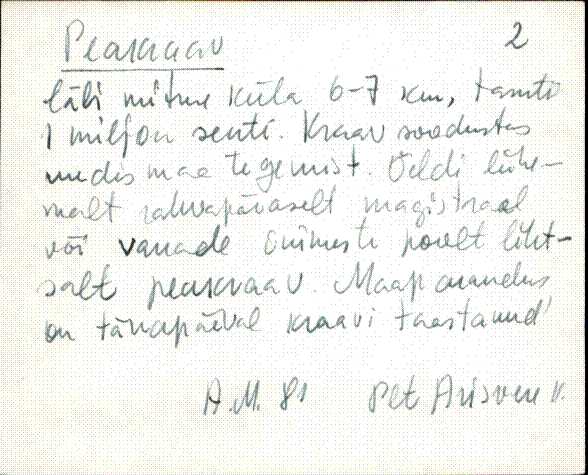 Peakraav 2
läbi mitme küla 6-7 km, tasuti
1 miljon senti. Kraav soodustas
uudismaa tegemist. Öeldi lühe-
malt rahvapäraselt magistraal
või vanade inimeste poolt liht-
salt peakraav. Maaparandus
on tänapäeval kraavi taastanud
A.M. 81 Pet Arisvere k.